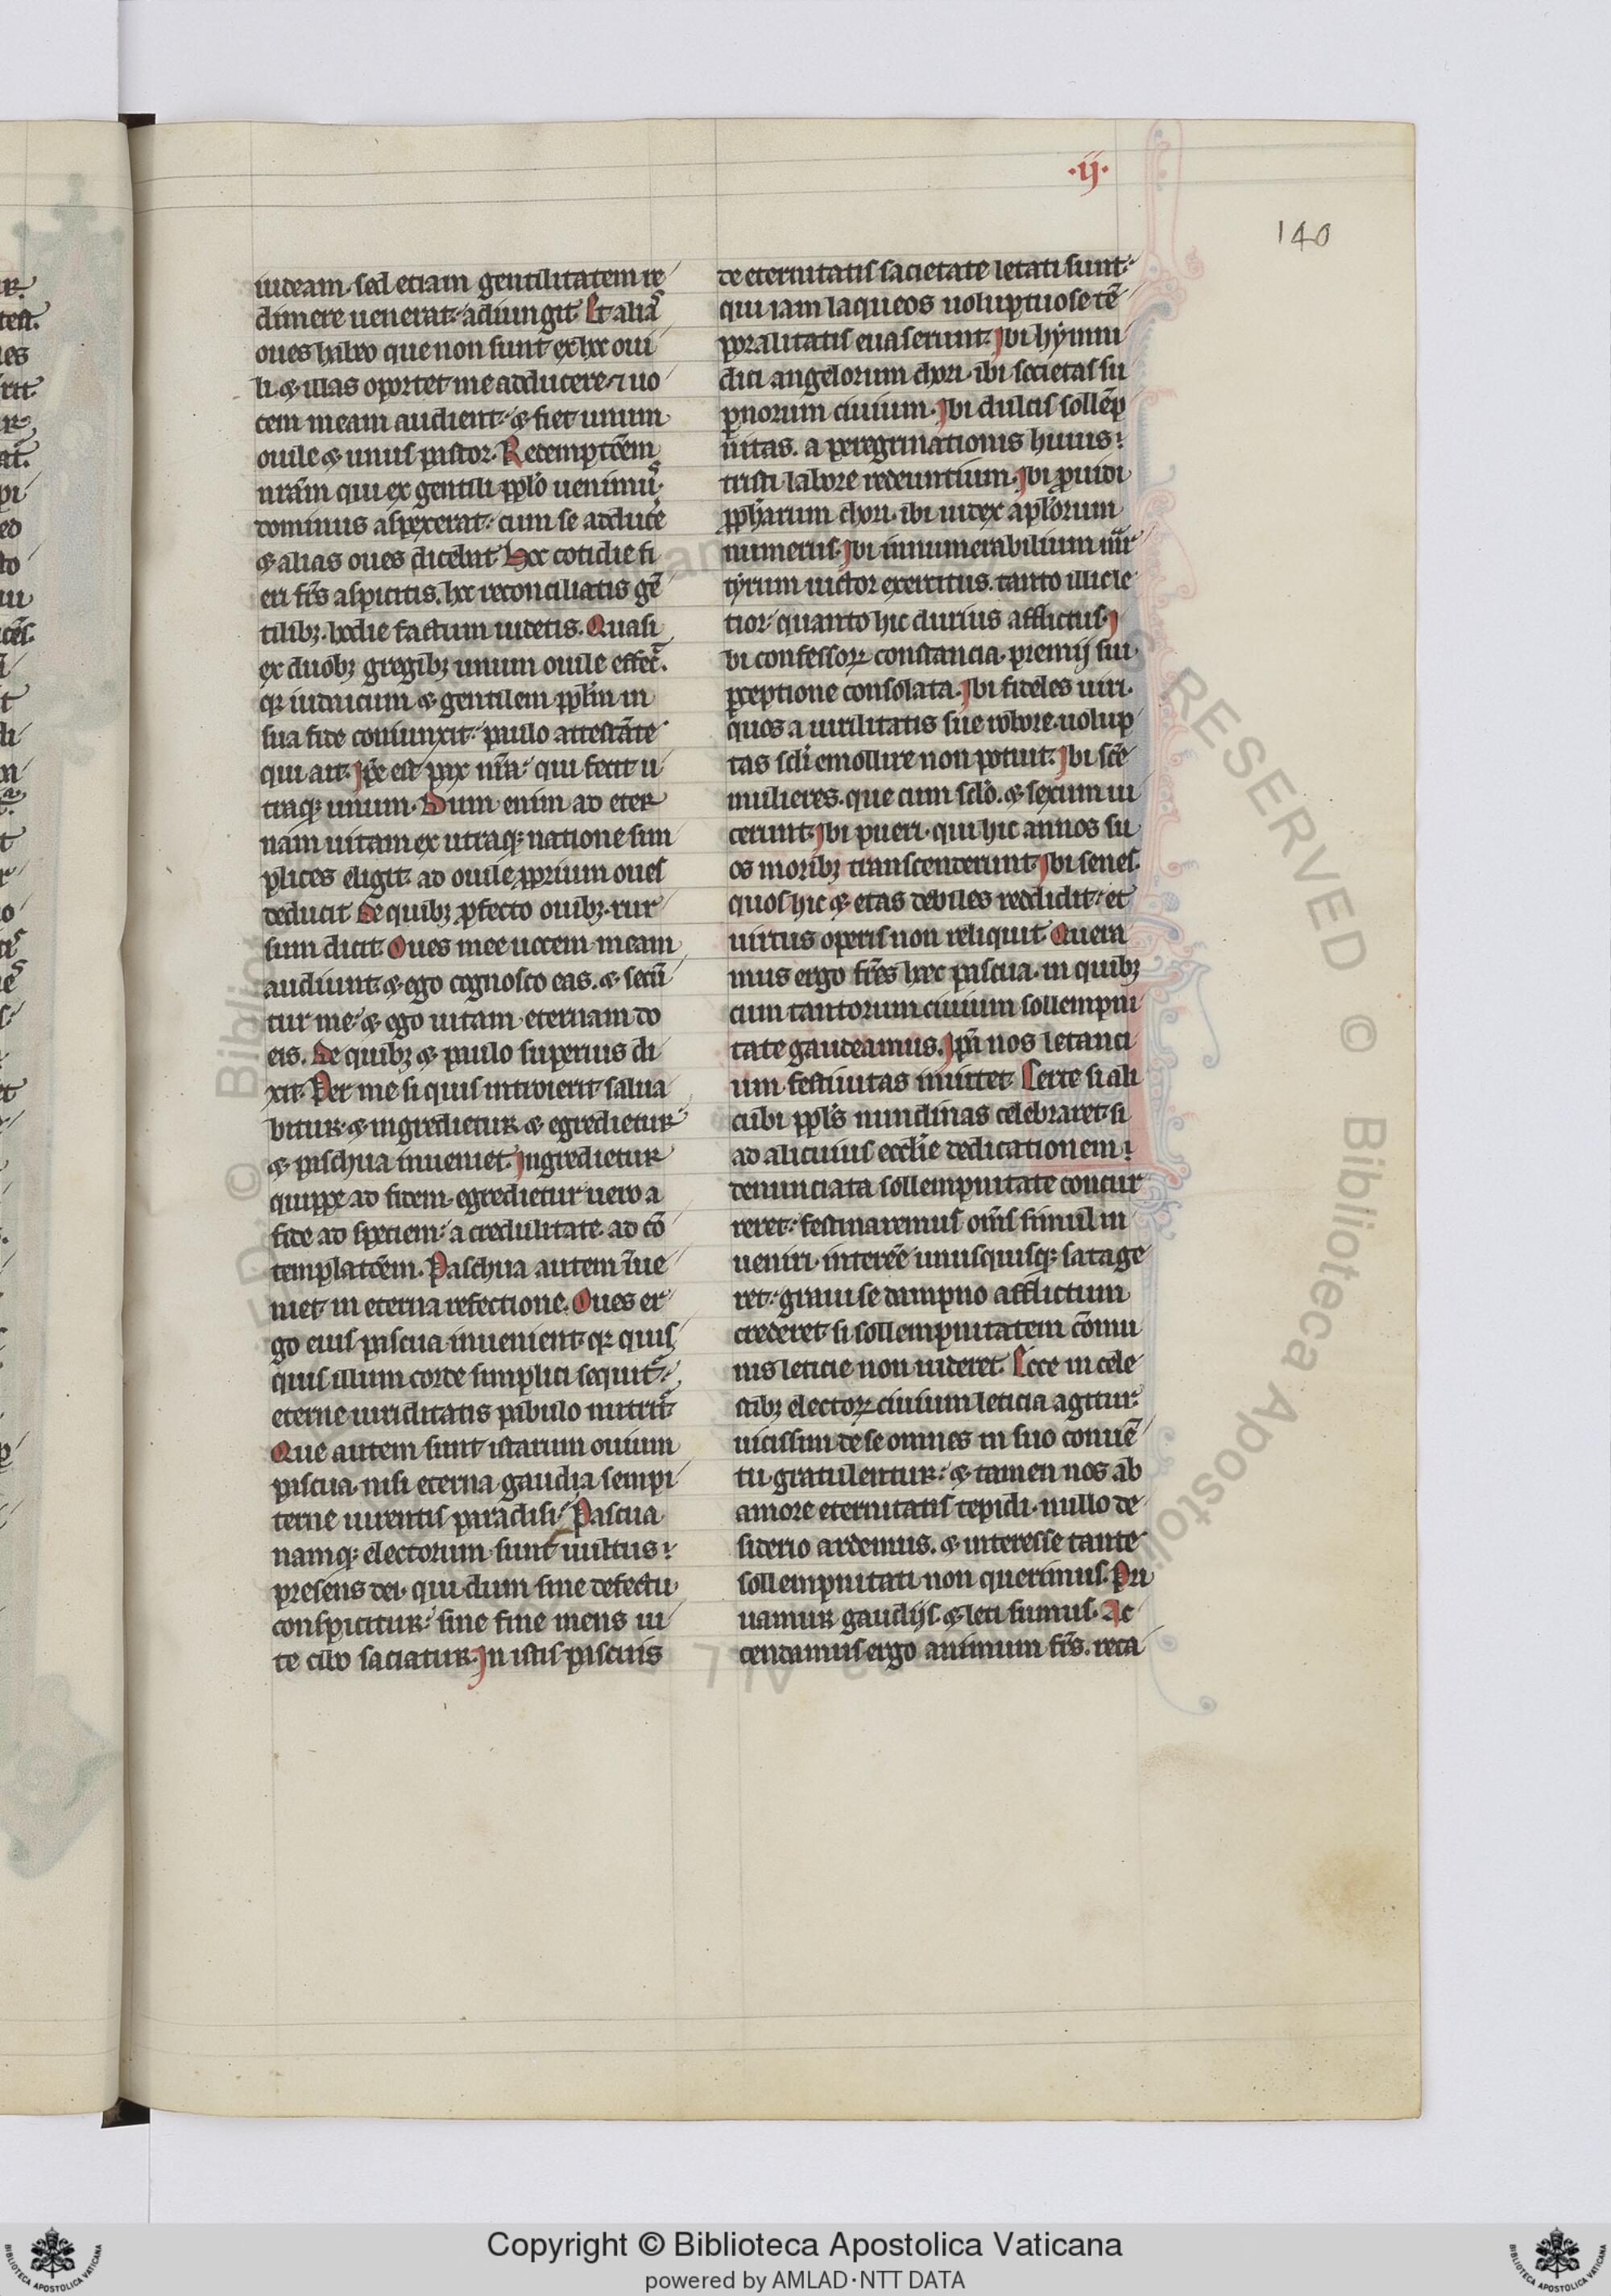 ·ij·
140
iudeam. sed etiam gentilitatem re
dimere uenerat: adiungit. Et alias
oues habeo que non sunt ex hoc oui
li. & illas oportet me adducere. ⁊ uo
cem meam audient. & fiet unum
ouile & unus pastor. Redemptōem
nr̄am qui ex gentili pplo uenimus.
dominus aspexerat: cum se adducē
& alias oues dicebat. Hoc cotidie fi
eri frs̄ aspicitis. hoc reconciliatis gē
tilibꝫ. hodie factum uidetis. Quasi
ex duobꝫ gregibꝫ unum ouile effec̄.
qꝛ iudaicum & gentilem ppl̄m in
sua fide coniunxit: paulo attestāte
qui ait. Ip̄e est pax nr̄a: qui fecit u
traqꝫ unum. Dum enim ad eter
nam uitam ex utraqꝫ natione sim
plices eligit. ad ouile ꝓprium oues
deducit. De quibꝫ ꝓfecto ouibꝫ. rur
sum dicit. Oues mee uocem meam
audiunt. & ego cognosco eas. & secū
tur me: & ego uitam eternam do
eis. De quibꝫ & paulo superius di
xit. Per me si quis introierit salua
bitur. & ingredietur & egredietur
& paschua inueniet. Ingredietur
quippe ad fidem. egredietur uero a
fide ad speciem: a credulitate. ad cō
templatōem. Paschua autem īue
niet in eterna refectione. Oues er
go eius pascua inuenient. qꝛ quis
quis illum corde simplici sequit̃:
eterne uiriditatis pabulo nutrit̃.
Que autem sunt istarum ouium
pascua. nisi eterna gaudia sempi
terne uirentis paradisi: Pascua
namqꝫ electorum sunt uultus:
presens dei. qui dum sine defectu
conspicitur: sine fine mens ui
te cibo saciatur. In istis pascuis
de eternitatis sacietate letati sunt:
qui iam laqueos uoluptuose tē
poralitatis euaserunt. Ibi hymni
dici angelorum chori. ibi societas su
pnorum ciuium. Ibi dulcis sollēp
nitas. a peregrinationis huius:
tristi labore redeuntium. Ibi ꝓuidi
ꝓph̄arum chori. ibi iudex apl̄orum
numerus. Ibi innumerabilium mr̄
tyrum uictor exercitus. tanto illic le
tior: quanto hic durius afflictus. I
bi confessoꝝ constancia. premij sui
ꝑceptione consolata. Ibi fideles uiri.
quos a uirilitatis sue robore. uolup
tas scl̄i emollire non potuit. Ibi scē
mulieres. que cum sclō. & sexum ui
cerunt. Ibi pueri. qui hic annos su
os moribꝫ transcenderunt. Ibi senes.
quos hic & etas debiles reddidit: et
uirtus operis non reliquit. Quera
mus ergo frēs hec pascua. in quibꝫ
cum tantorum ciuium sollempni
tate gaudeamus. Ip̄a nos letanci
um festiuitas inuitet. Certe si ali
cubi ppl̄s nundinas celebraret. si
ad alicuius eccl̄ie dedicationem:
denunciata sollempnitate concur
reret: festinaremus om̄s simul in
ueniri. interēe unusquisqꝫ satage
ret: graui se dampno afflictum
crederet. si sollempnitatem cōmu
nis leticie non uideret. Ecce in cele
stibꝫ electoꝝ ciuium leticia agitur:
uicissim de se omnes in suo conuē
tu gratulentur: & tamen nos ab
amore eternitatis tepidi. nullo de
siderio ardemus. & interesse tante
sollempnitati non querimus. Pri
uamur gaudijs. & leti sumus. Ac
cendamus ergo animum frs̄. reca
Copyright © Biblioteca Apostolica Vaticana
powered by AMLAD·NTT DATA